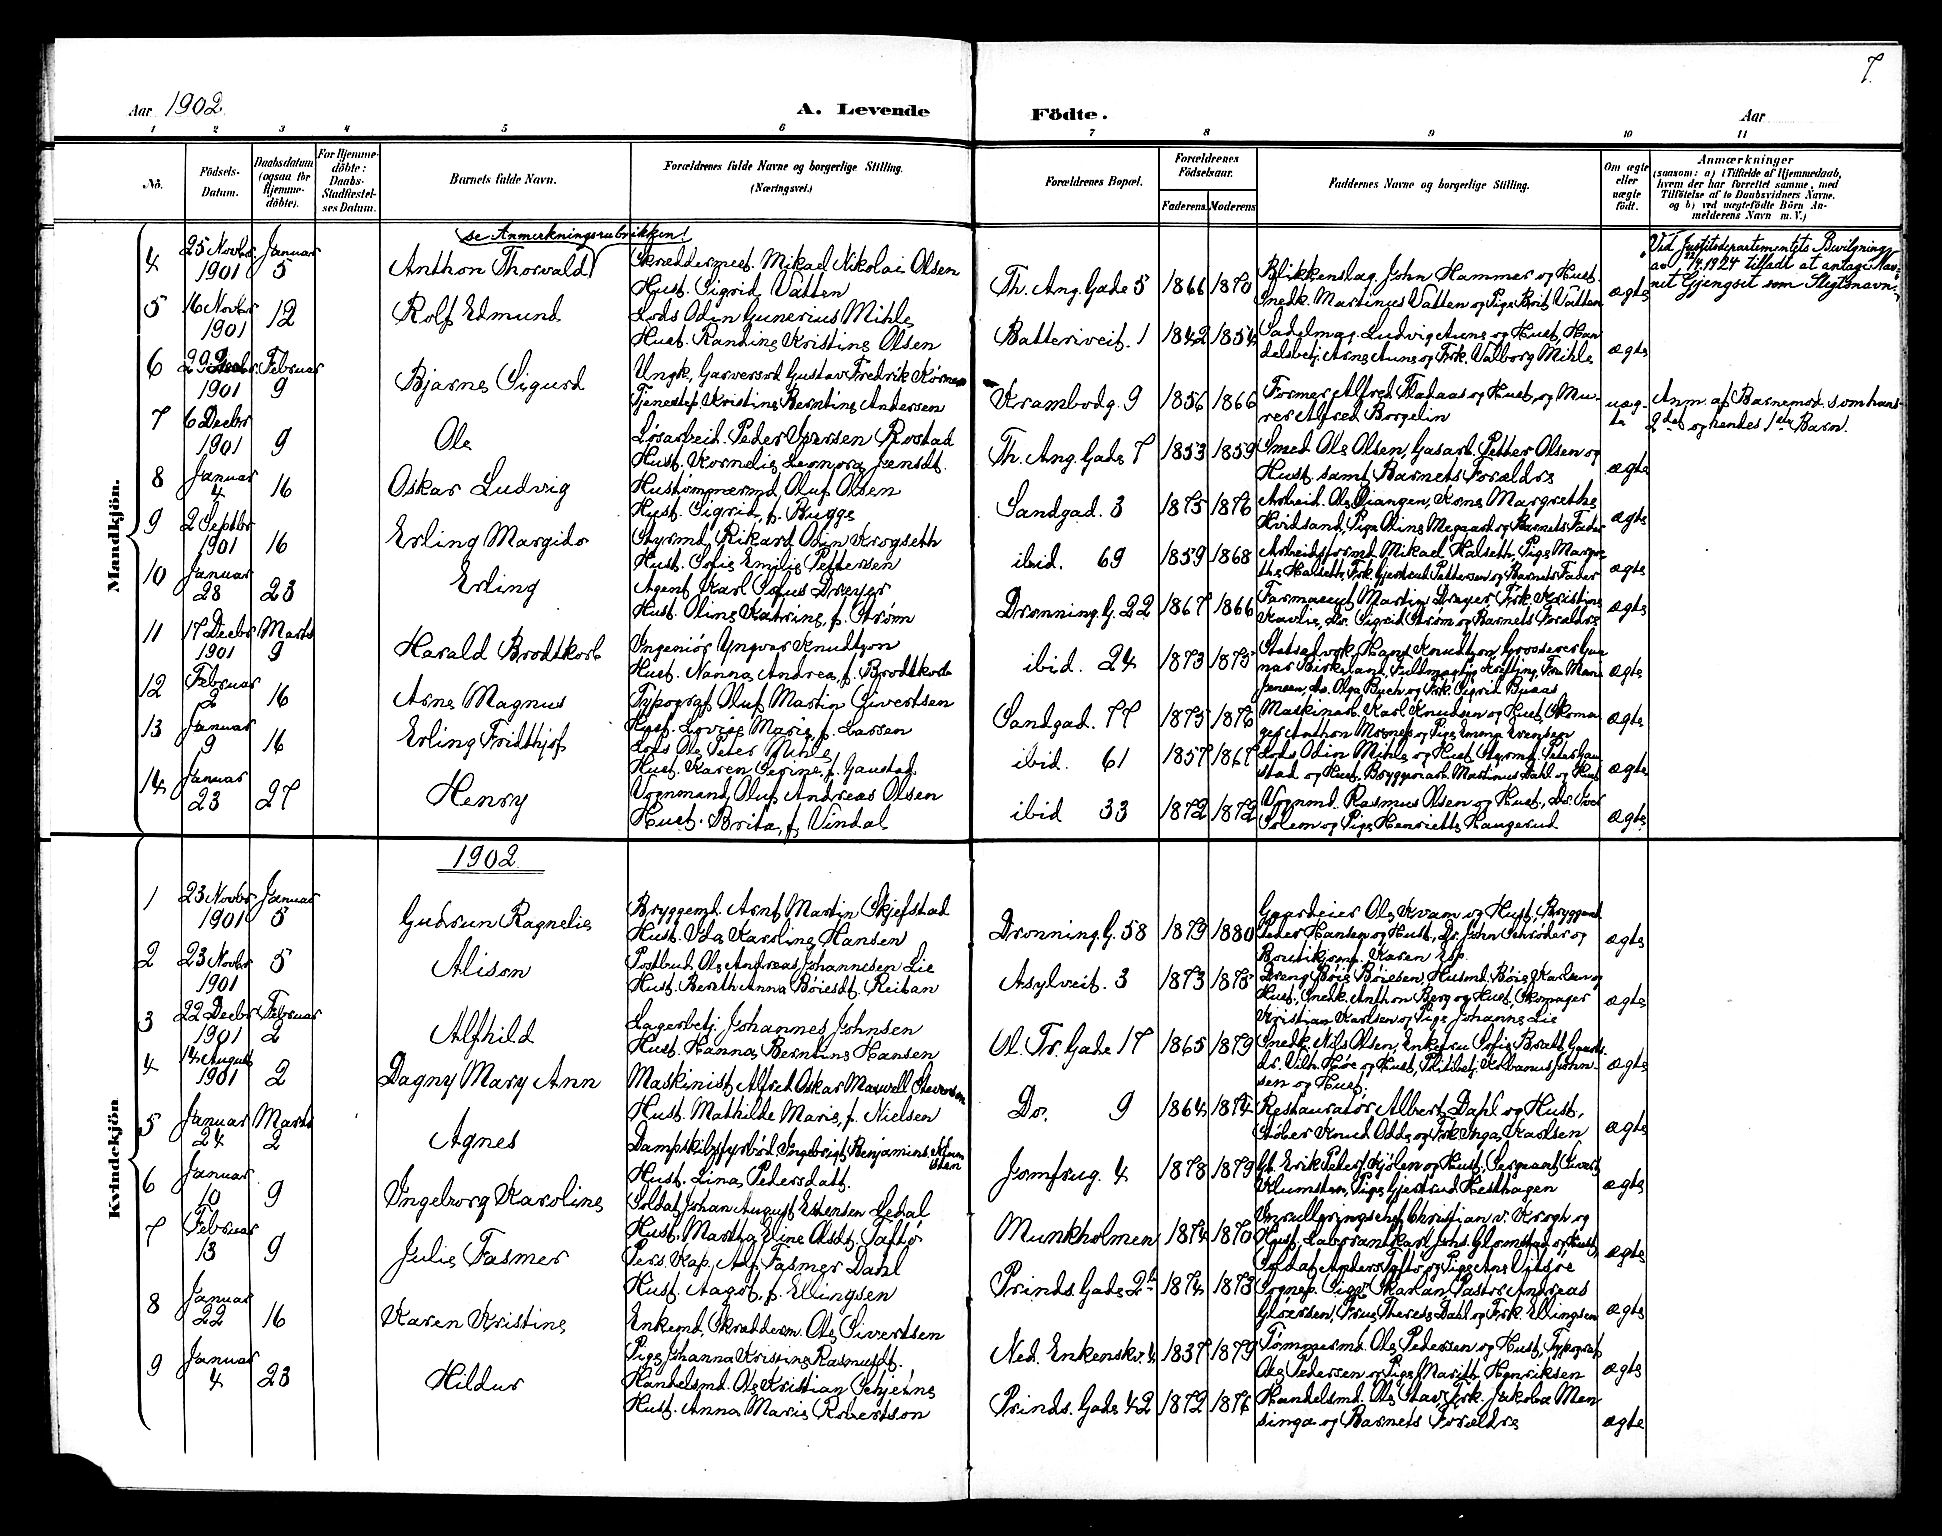 7.
Aar 1902. A. Levende Födte. Aar
1 2 3 4 5 6 7 8 9 10 11
No.
Födsels-
Datum.
Daabsdatum
(ogsaa for
Hjemme-
döbte).
For Hjemme-
döbte:
Daabs-
Stadfæstel-
ses Datum.
Barnets fulde Navn.
Forældrenes fulde Navne og borgerlige Stilling.
(Næringsvei.)
Forældrenes Bopæl.
Forældrenes
Födselsaar.
Faderens. Moderens.
Faddernes Navne og borgerlige Stilling.
Om ægte
eller
uægte
födt.
Anmærkninger
(saasom: a) i Tilfælde af Hjemmedaab,
hvem der har forrettet samme, med
Tilföielse af to Daabsvidners Navne.
og b) ved uægtefödte Börn An-
melderens Navn m. V.)
Mandkjön.
se Anmerkningsrubrikken!
4 25 Novbr 1901 Januar 5 Anthon Thorvald
Skreddermest. Mikael Nikolai Olsen
Hust. Sigrid Vatten
Th. Ang. Gade 5 1866 1870
Blikkenslag. John Hammer og Hust.
Snedk. Martinus Vatten og Pige Brit Vatten
ægte
Ved Justitsdepartementets Bevilgning
av 1924 tilladt at antage Nav-
net Gjengset som Slegtsnavn.
5 16 Novbr 1901 12 Rolf Edmund
Lods Odin Gunerius Mihle
Hust. Randine Kristine Olsen
Batteriveit. 1 1842 1854
Sadelmag. Ludvig Aune og Hust, Han-
delsbetj. Arne Aune og Frk. Valborg Mihle
ægte
6 1901 Februar 9 Bjarne Sigurd
Ungk, Garversvd Gustav Fredrik
Tjenestep. Kristine Berntine Andersen
Krambodg. 9 1856 1866
Former Alfred Fladaas og Hust, og Mu-
rer Alfred Borgelin
uæg-
te
Anm. af Barnemod. som hans
2det og hendes 1ste Barn.
7 6 Decbr 1901 9 Ole
Løsarbeid. Peder Iversen Rostad
Hust. Kornelie Leonora Jensdt.
Th. Ang. Gade 7 1853 1859
Smed Ole Olsen, Gasarb. Petter Olsen og
Hust. samt Barnets Forældre
ægte
8 Januar 4 16 Oskar Ludvig
Oluf Olsen
Hust. Sigrid, f. Bugge
Sandgad. 3 1875 1876
Arbeid. Ole Kone Margrethe
Hvidsand, Pige Oline Megaard og Barnets Fader
ægte
9 2 Septbr 1901 16 Erling Margido
Styrmd. Rikard Odin Krogseth
Hust. Sofie Emilie Pettersen
ibid. 69 1859 1868
Arbeidsformd. Mikael Halseth, Pige Margre-
the Halseth, Frk. Gjertrud Pettersen og Barnets Fader
ægte
10 Januar 28 23 Erling
Agent Karl Sofus Dreyer
Hust. Oline Katrine, f. Strøm
Dronning. G. 22 1867 1866
Farmaceut Martin Dreyer, Frk. Kristine
Kavlie, Do. Sigrid Strøm og Barnets Forældre
ægte
11 17 Decbr 1901 Marts 9 Harald Brodtkorb
Ingeniör Yngvar Knudtzon
Hust. Nanna Andrea, f. Brodtkorb
ibid. 24 1873 1875
Hans Knudtzon, Grosserer Gun-
nar Birkeland, Fru Marie
Jensen, do. Olga Buch og Frk. Sigrid Buaas
ægte
12 Februar 2 16 Arne Magnus
Typograf Oluf Martin Sivertsen
Hust. Lovise Marie, f. Larsen
Sandgad. 77 1875 1876
Maskinarb. Karl Knudsen og Hust, Skoma-
ger Anthon Moxnes og Pige Emma Svensen
ægte
13 Januar 9 16 Erling Fridthjof
Lods Ole Peter Mihle
Hust. Karen Serine, f. Gaustad.
ibid. 61 1857 1867
Lods Odin Mihle og Hust, Styrmd. Peter Gau-
stad og Hust, Bryggenarb. Martinus Dahl og Hust
ægte
14 Januar 23 27 Henry
Vognmand Oluf Andreas Olsen
Hust. Brita, f. Vindal
ibid 33 1872 1872
Vognmd. Rasmus Olsen og Hust., Do. Iver
Solem og Pige Henriette Haugerud
ægte.
Kvindekjön
1902.
1 23 Novbr 1901 Januar 5 Gudrun Ragnelie
Bryggemd. Arnt Martin Skjefstad
Hust. Ida Karoline Hansen
Dronning. G. 58 1879 1880
Gaardeier Ole Kvam og Hust, Bryggemd.
Peder Hansen og Hust, Do. John Schrøder og
Butikjomf. Karen Esp.
ægte
2 23 Novbr 1901 5 Alison
Postbud Ole Andreas Johannesen Lie
Hust. Bereth Anna Böiesdt. Reitan
Asylveit. 3 1873 1875
Dreng Böie Böiesen, Husmd. Böie Karlsen og
Hust, Snedk. Anthon Berg og Hust, Skomager
Kristian Karlsen og Pige Johanne Lie
ægte
3 22 Decbr 1901 Februar 2 Alfhild
Lagerbetj. Johannes Johnsen
Hust. Hanna Berntine Hansen
Vl. Tr. Gade 17 1865 1879
Snedk. Nils Olsen, Enkefru Sofie Bratt,
Vilh. Høve og Hust, Urbanus John-
sen og Hust.
ægte
4 14 August 1901 2 Dagny Mary Ann
Maskinist Alfred Oskar Maxwell Stevenson
Hust. Mathilde Marie, f. Nielsen
Do. 9 1864 1874
Restauratør Albert Dahl og Hust,
Støber Knud Odde og Frk. Inga Karlsen
ægte
5 Januar 24 Marts 2 Agnes
Dampskibsfyrbød. Ingebrigt Benjaminsen Klum-
sten
Hust. Lina Pedersdatt.
Jomfrug. 4 1878 1879
Gb. Erik Peter Kjølen og Hust. Sergeant Sivert
Klumsten, Pige Gjertrud Hesthagen
ægte
6 Januar 10 9 Ingeborg Karoline
Soldat Johan August Estensen Ledal
Hust. Martha Eline Olsdt. Taftø
Munkholmen 1874 1870
Inrulleringschef Christian v. Krogh og
Hust, Laborant Karl Johs. Glomstad og Hust
Soldat Anders Taftø og Pige Ane
ægte
7 Februar 13 9 Julie Fasmer
Pers. Kap. Alf Fasmer Dahl
Hust. Aagot, f. Ellingsen
Prinds. Gade 2b 1874 1873
Sognep. Sigv. Skavlan, Pastor Andreas
Gløersen, Frue Therese Dahl og Frk. Ellingsen
ægte
8 Januar 22 16 Karen Kristine
Enkemd, Skræderm. Ole Sivertsen
Pige Johanna Kristine Rasmusdt.
Ned. Enkenskv. 4 1837 1879
Tømmermd. Ole Pedersen og Hust, Typograf
Ole Pedersen og Pige Marith Henriksen
ægte
9 Januar 4 23 Hildur
Handelsmd. Ole Kristian Schjefne
Hust. Anna Marie Robertson
Prinds. Gade 42 1872 1876
Handelsmd. Ole Stav, Frk. Jakoba Men
singa og Barnets Forældre
ægte